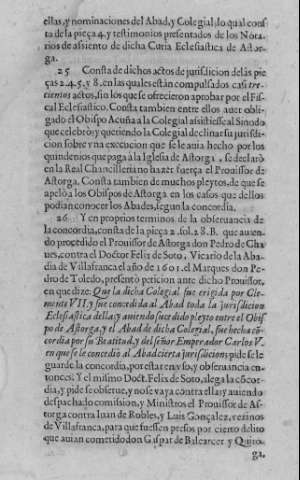 ellas, y nominaciones del Abad, y Colegial, lo qual cons
ta de la pieça 4. y testimonios presentados de los Nota.
rios de asiento de dicha Curia Eclesiastica de Astor-
ga.
25 Consta de dichos actos de jurisdicion de las pie
ças 2.4.5. y 8. en las quales están compulsados casi tre-
cientos actos, sin los que se ofrecieron aprobar por el Fis-
cal Eclesiastico. Consta tambien entre ellos auer obli-
gado el Obispo Acuña a la Colegial assistiesse al Sinodo
que celebrò: y queriendo la Colegial declinar su jurisdi-
cion sobre vna execucion que se le auia hecho por los
quindenios que paga à la Iglesia de Astorga, se declarò
en la Real Chancilleria no hazer fuerça el Prouissor de
Astorga. Consta tambien de muchos pleytos, de que se
apelò a los Obispos de Astorga en los casos que dellos
podian conocer los Abades, segun la concordia.
26 Y en proprios terminos de la obseruancia de
la concordia, consta de la pieça 2. fol. 28. B. que auien-
do procedido el Prouissor de Astorga don Pedro de Cha-
ues, contra el Doctor Felix de Soto, Vicario de la Aba-
dia de Villafranca el año de 1601. el Marques don Pe-
dro de Toledo, presentò peticion ante dicho Prouissor,
en que dize: Que la dicha Colegial fue erigida por Cle-
mente VII. y fue concedida al Abad toda la jurisdicion
Eclesiastica della: y auiendo sucedido pleyto entre el Obis-
po de Astorga, y el Abad de dicha Colegial, fue hecha cõ-
cordia por su Beatitud, y del señor Emperador Carlos V.
en que se le concediò al Abad cierta jurisdicion: pide se le
guarde la concordia, por estar en vso, y obseruancia en-
tonces: Y el mismo Doct. Felix de Soto, alega la cõcor-
dia, y pide se obserue, y no se vaya contra ella: y auiendo
despachado comision, y Ministros el Prouissor de As-
torga contra Iuan de Robles, y Luis Gonçalez, vezinos
de Villafranca, para que fuessen presos por cierto delito
que auian cometido don Gaspar de Balcarcer y Quiro-
ga.